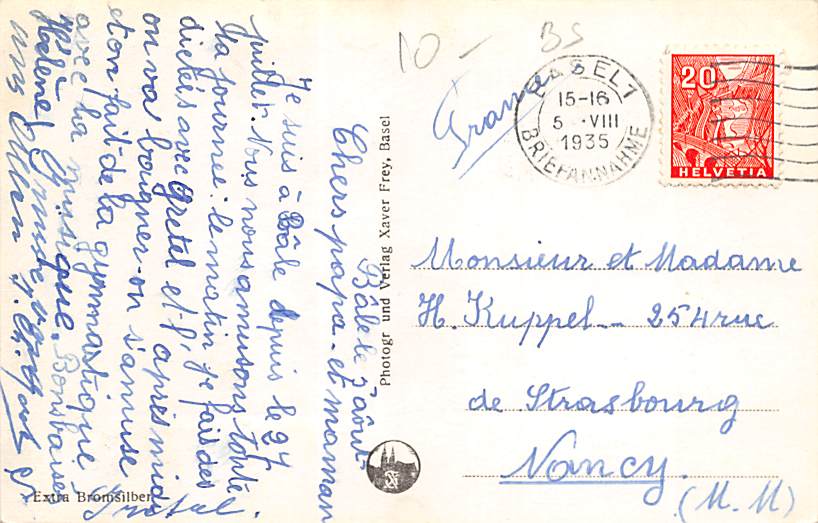 10 - BS
France
BASEL 7
15-16
5. VIII
1935
BRIEFANNAHME
20
HELVETIA
Bâle le 5 août
Chers papa et maman
Je suis à Bâle depuis le 27
juillet. Nous nous amusons toute
la journée: le matin je fais des
dictées avec Gretel et l'après midi
on va bouger on s'amuse
et on fait de la gymnastique
avec la musique. Bons baisers
Hélène
Photogr und Verlag Xaver Frey, Basel
Extra Bromsilber
Monsieur et Madame
H. Kuppel - 254 rue
de Strasbourg
Nancy
(M. M)